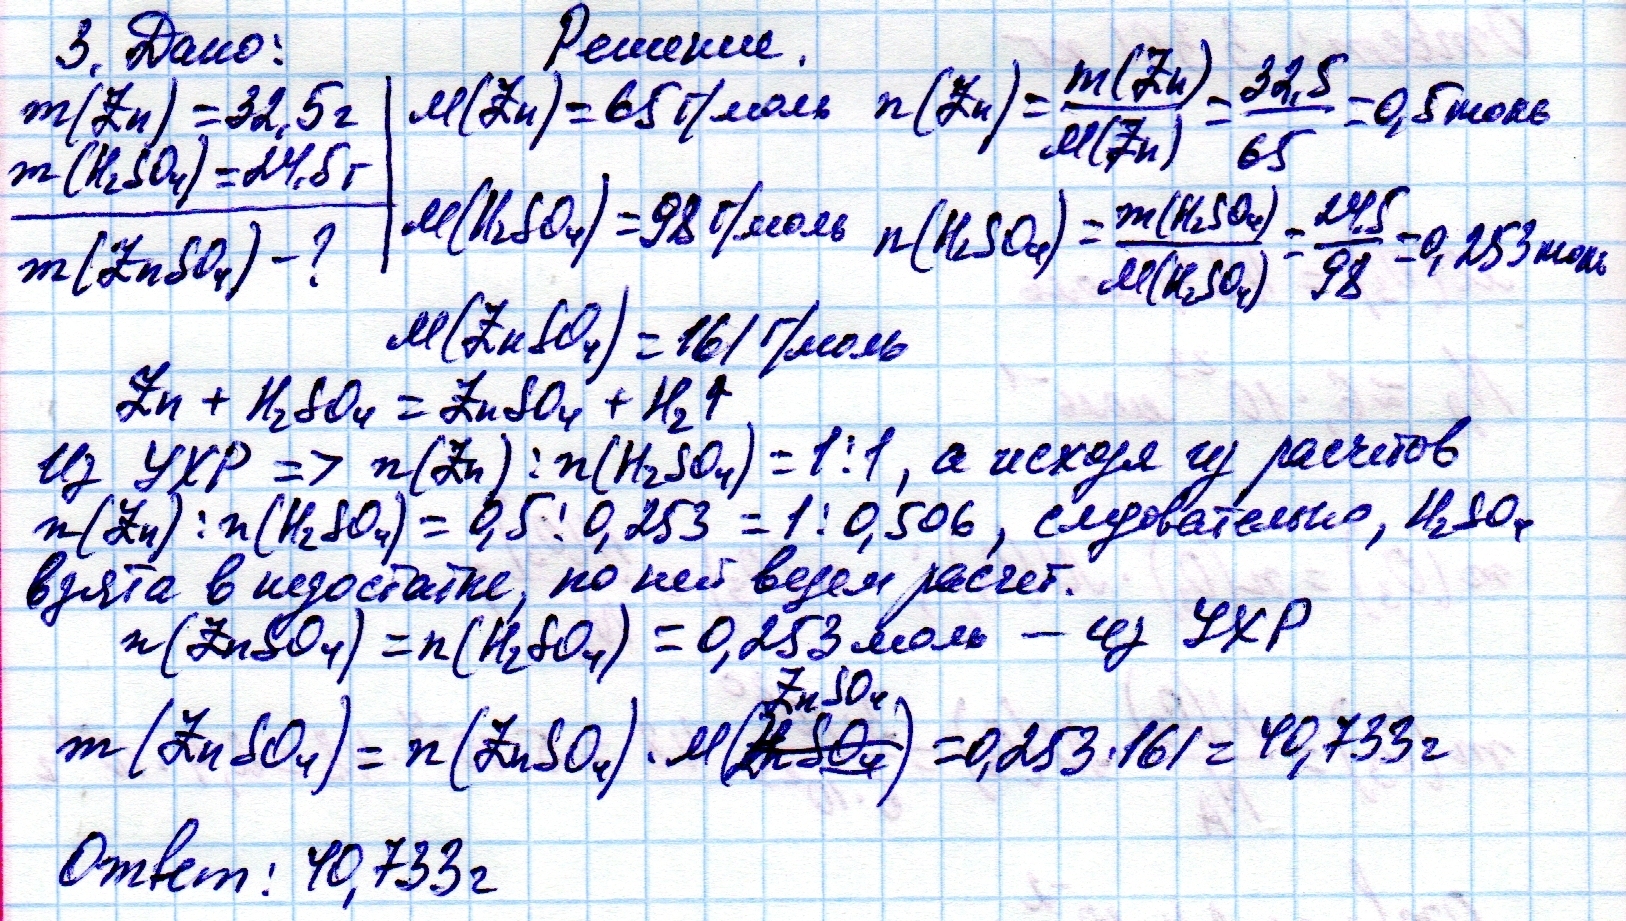 3. Дано: Решение.
m(Zn) = 32,5г M(Zn) = 65 г/моль n(Zn) = m(Zn)/M(Zn) = 32,5/65 = 0,5 моль
m(H₂SO₄) = 24,5г
m(ZnSO₄) - ? M(H₂SO₄) = 98 г/моль n(H₂SO₄) = m(H₂SO₄)/M(H₂SO₄) = 24,5/98 = 0,253 моль
M(ZnSO₄) = 161 г/моль
Zn + H₂SO₄ = ZnSO₄ + H₂↑
Из УХР => n(Zn) : n(H₂SO₄) = 1 : 1, а исходя из расчетов
n(Zn) : n(H₂SO₄) = 0,5 : 0,253 = 1 : 0,506, следовательно, H₂SO₄
взята в недостатке, по ней ведем расчет.
n(ZnSO₄) = n(H₂SO₄) = 0,253 моль — из УХР
m(ZnSO₄) = n(ZnSO₄) · M(ZnSO₄) = 0,253 · 161 = 40,733г
Ответ: 40,733г